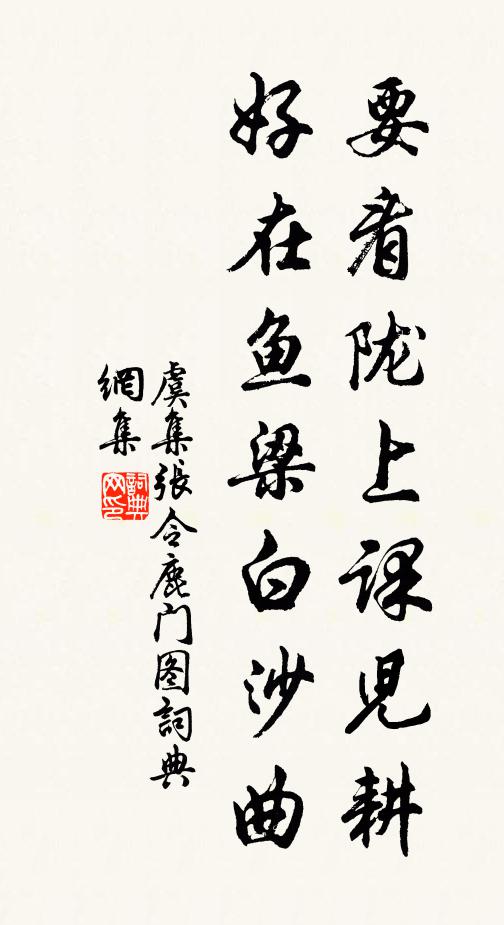 要看陇上课児耕
好在鱼梁白沙曲
虞集張令鹿门图詞典
網集
詞典
网印